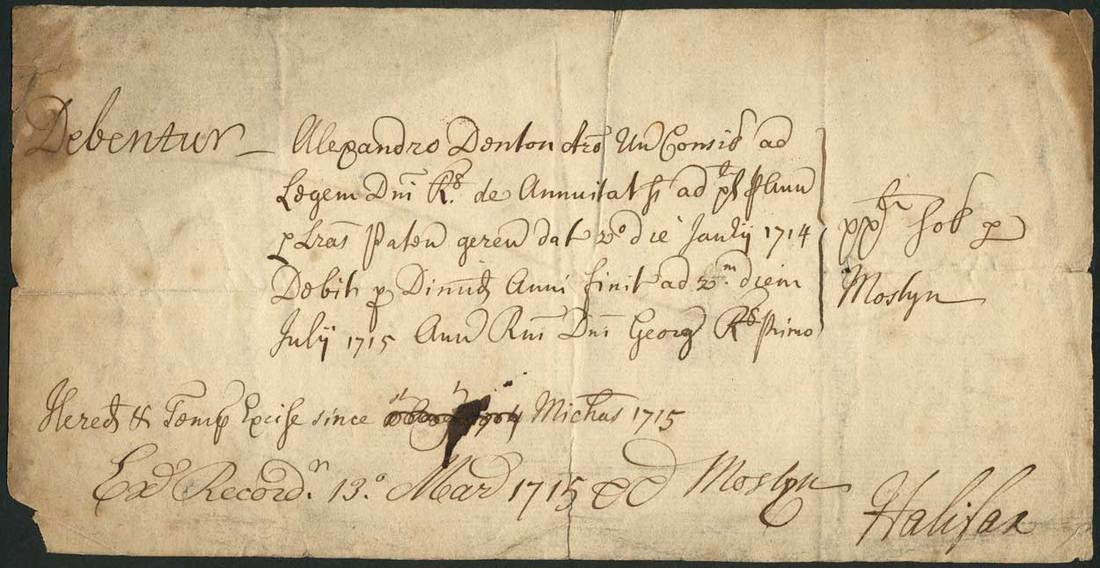 Debentur Alexandro Denton Arō Un Consil ad
Legem Dni Rs. de Annuitat ad Ann
p Lras Paten geren dat 2o die Janrij 1714
Debit p Dimid Anni finit ad 2m. diem
Julij 1715 Ann Rni Dni Georg Rs Primo
p
Moslyn
Hered & Temp Excise since Michas 1715
Exd Recordr. 13.o Mar 1715 Moslyn
Halifax